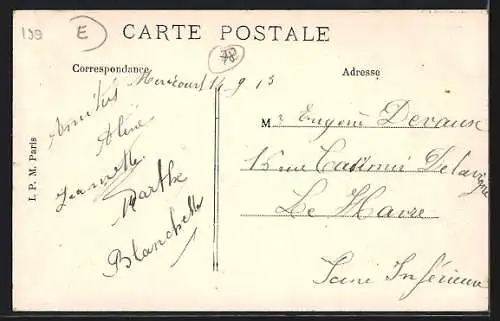 199
E
CARTE POSTALE
Correspondance
Adresse
Mericourt 14 9 13
Amitiés
Aline
Jeannette
Marthe
Blanchette
Mr Eugène Devaux
15 rue Casimir Delavigne
Le Havre
Seine Inférieure
I. P. M. Paris